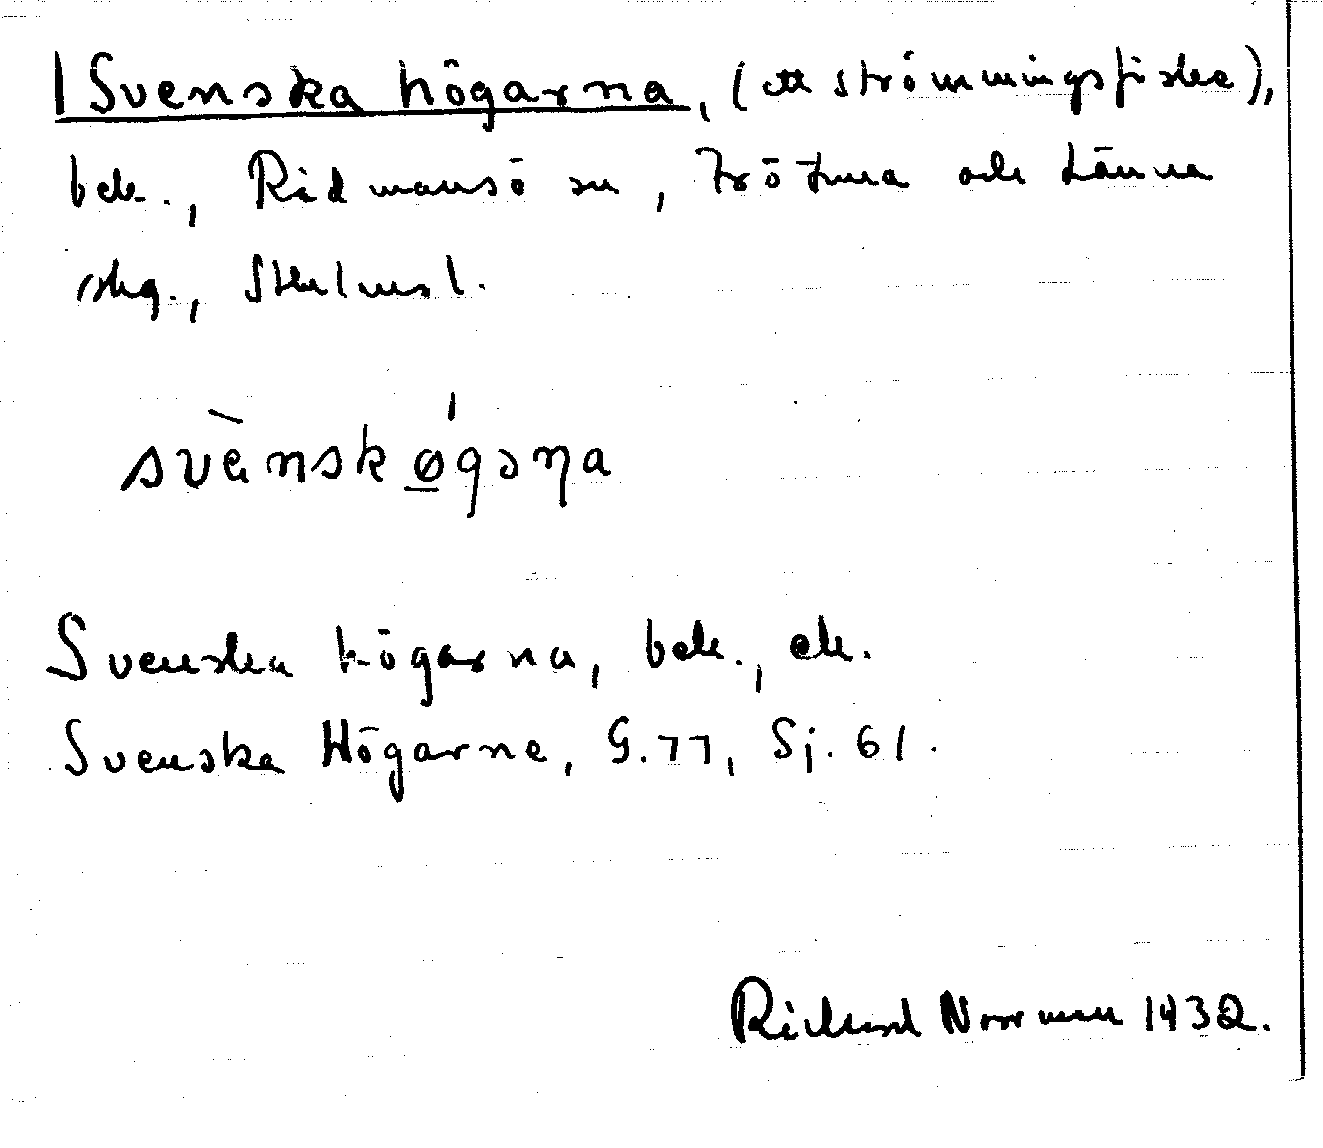 Svenska högarna, (ett strömmingsfiske),
bek., Rådmansö sn, Frötuna och Länna
skg., Sthlms l.
svènskǿgaɳa
Svenska högarna, bek., ek.
Svenska Högarne, G. 77, Sj. 61.
Rickard Norrman 1932.